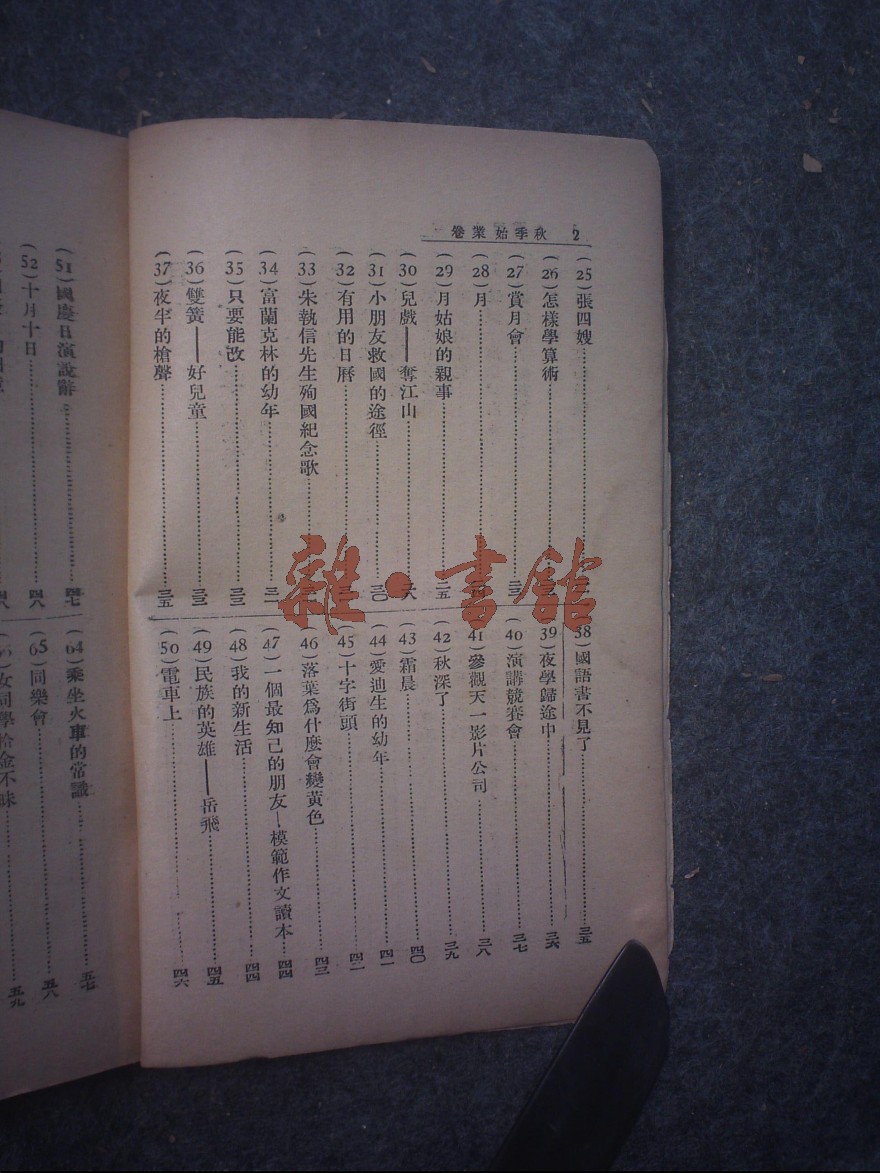 2 秋季始業卷
(25)張四嫂
(26)怎樣學算術
(27)賞月會……二三
(28)月
(29)月姑娘的親事……二五
(30)兒戲——奪江山……二六
(31)小朋友救國的途徑……三〇
(32)有用的日曆
(33)朱執信先生殉國紀念歌
(34)富蘭克林的幼年
(35)只要能改……三三
(36)雙簧——好兒童……三三
(37)夜半的槍聲……三五
(38)國語書不見了……三五
(39)夜學歸途中……三六
(40)演講競賽會……三七
(41)參觀天一影片公司……三八
(42)秋深了……三九
(43)霜晨……四〇
(44)愛迪生的幼年……四一
(45)十字街頭……四二
(46)落葉爲什麼會變黃色……四三
(47)一個最知己的朋友—模範作文讀本……四四
(48)我的新生活……四四
(49)民族的英雄——岳飛……四五
(50)電車上……四六
(51)國慶日演說辭……四七
(52)十月十日……四八
(64)乘坐火車的常識……五七
(65)同樂會……五八
女同學拾金不昧……五九
雜·書館